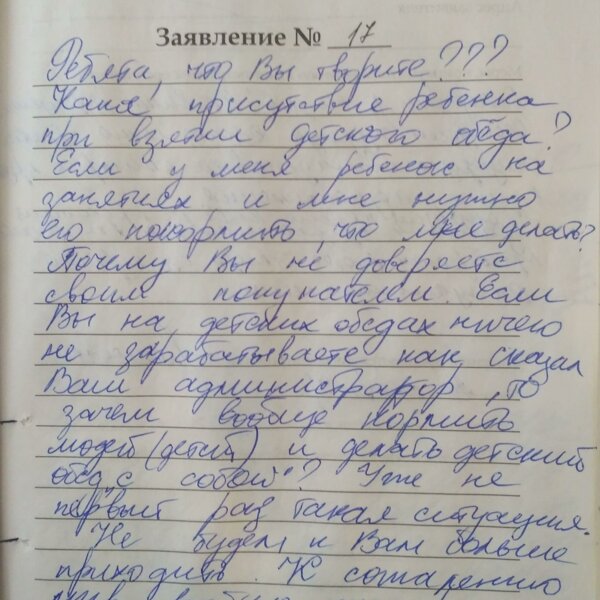 Заявление № 17
Ребята, что Вы творите???
Какое присутствие ребенка
при взятии детского обеда?
Если у меня ребенок на
занятиях, и мне нужно
его покормить, что мне делать?
Почему Вы не доверяете
своим покупателем. Если
Вы на детских обедах ничего
не зарабатываете как сказал
Вам администратор, то
зачем вообще кормить
людей (детей) и делать детский
обед "с собой"? Уже не
первый раз такая ситуация.
Не будем к Вам больше
приходить. К сожалению